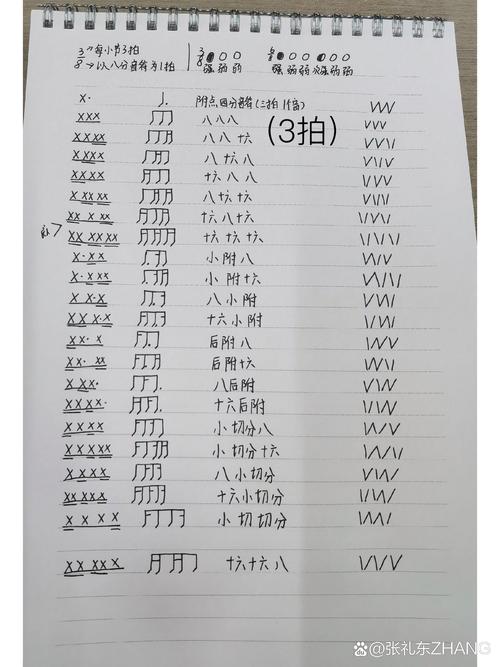 3 → 每小节3拍
8 → 以八分音符为1拍
3/8 ● ○ ○
强弱弱
6/8 ● ○ ○ ● ○ ○
强弱弱次强弱弱
X· 附点四分音符(三拍1个音)
XXX 八八八
(3拍)
XXXX 八八十六
XXXX 八十六八
XXXX 十六八八
X XXXX 八十六十六
XX X XX 十六八十六
XX XX XX 十六十六十六
X·XX 小附八
X·XXX 小附十六
X X·X 八小附
XX X·X 十六小附
XX· X 后附八
XX· XX 后附十六
X XX· 八后附
XX XX· 十六后附
XXXX 小切分八
XXXXX 小切分十六
X XXX 八小切分
XX XXX 十六小切分
X X X X 小切切分
XX XX X 十六十六八
张礼东ZHANG